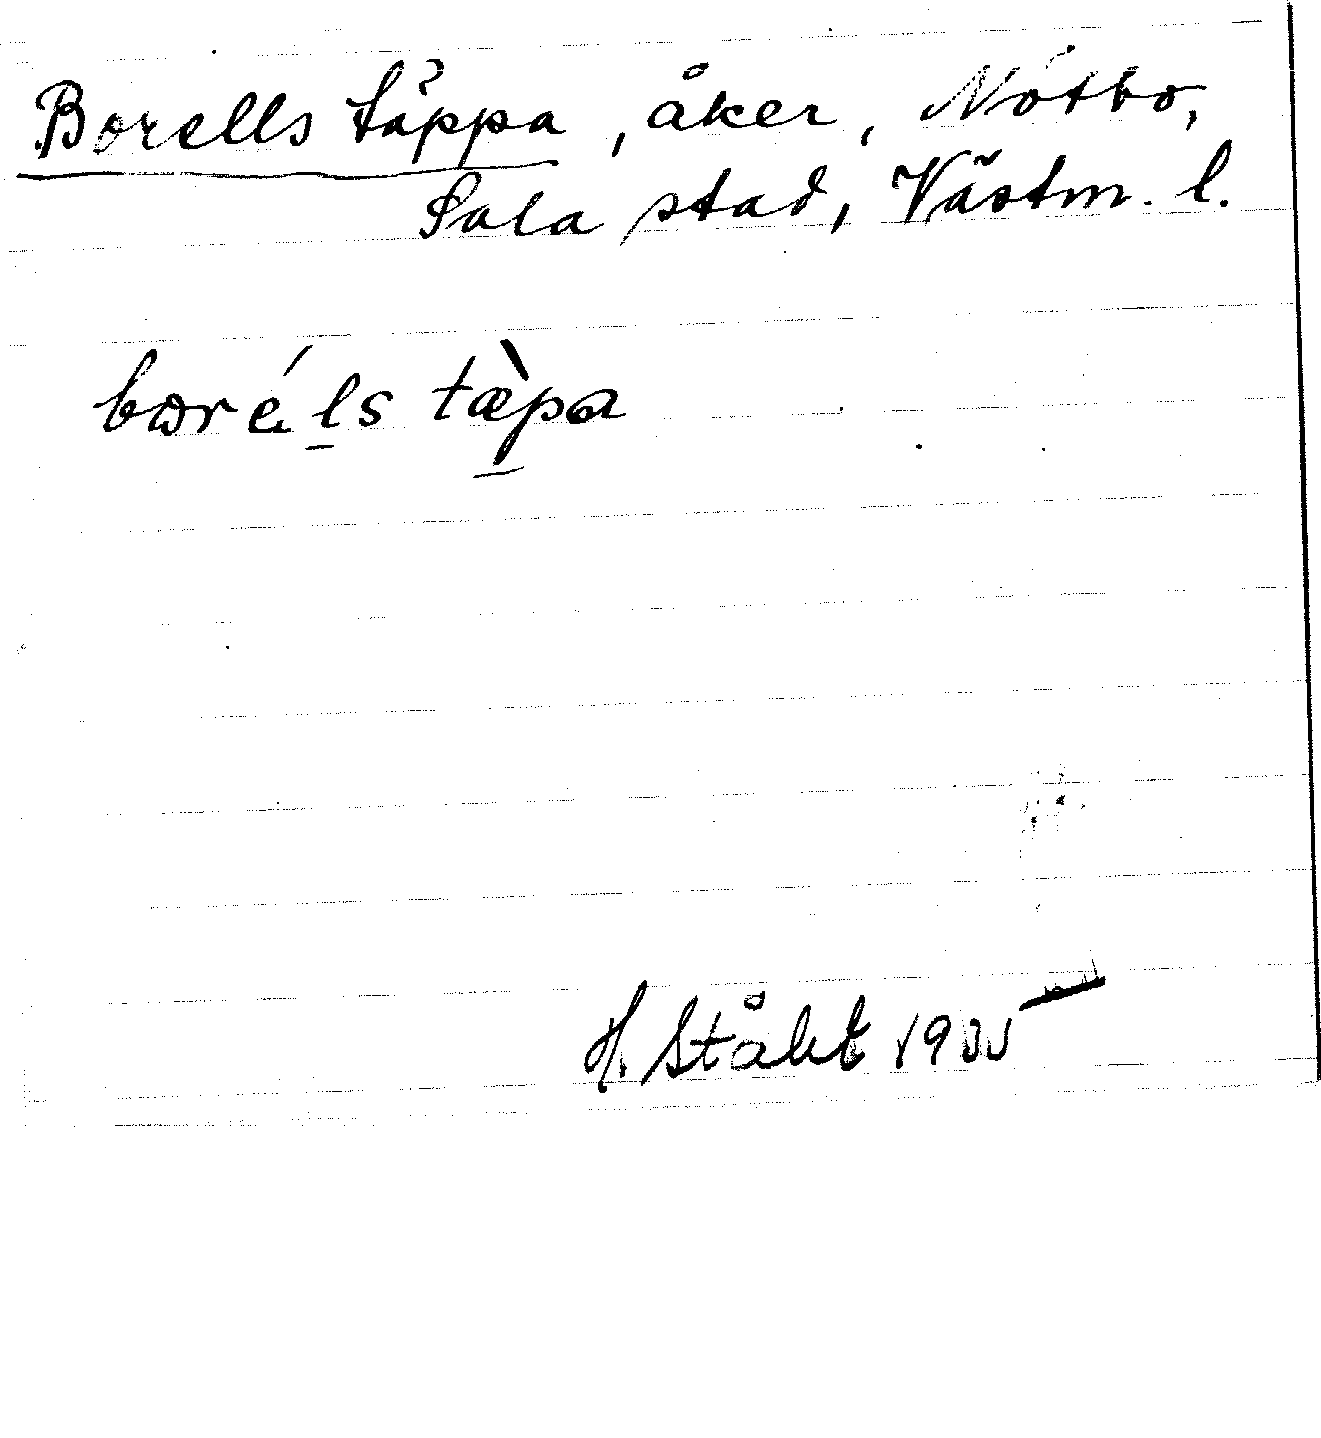 Borells täppa, åker, Nötbo,
Sala stad, Västm. l.
borέl̠s tæ̀p̠a
H. Ståhl